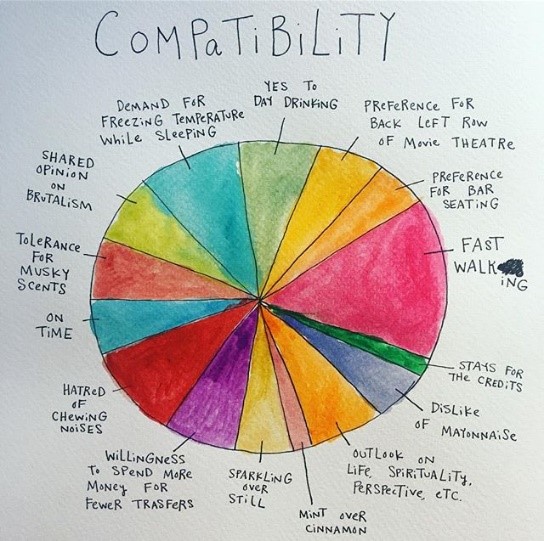 COMPATIBILITY
YES TO
DAY DRINKING
PREFERENCE FOR
BACK LEFT ROW
OF MOVIE THEATRE
PREFERENCE
FOR BAR
SEATING
FAST
WALK
ING
STAYS FOR
THE CREDITS
DISLIKE
OF MAYONNAISE
OUTLOOK ON
LIFE, SPIRITUALITY,
PERSPECTIVE, ETC.
MINT OVER
CINNAMON
SPARKLING
OVER
STILL
WILLINGNESS
TO SPEND MORE
MONEY FOR
FEWER TRASFERS
HATRED
OF
CHEWING
NOISES
ON
TIME
TOLERANCE
FOR
MUSKY
SCENTS
SHARED
OPINION
ON
BRUTALISM
DEMAND FOR
FREEZING TEMPERATURE
WHILE SLEEPING